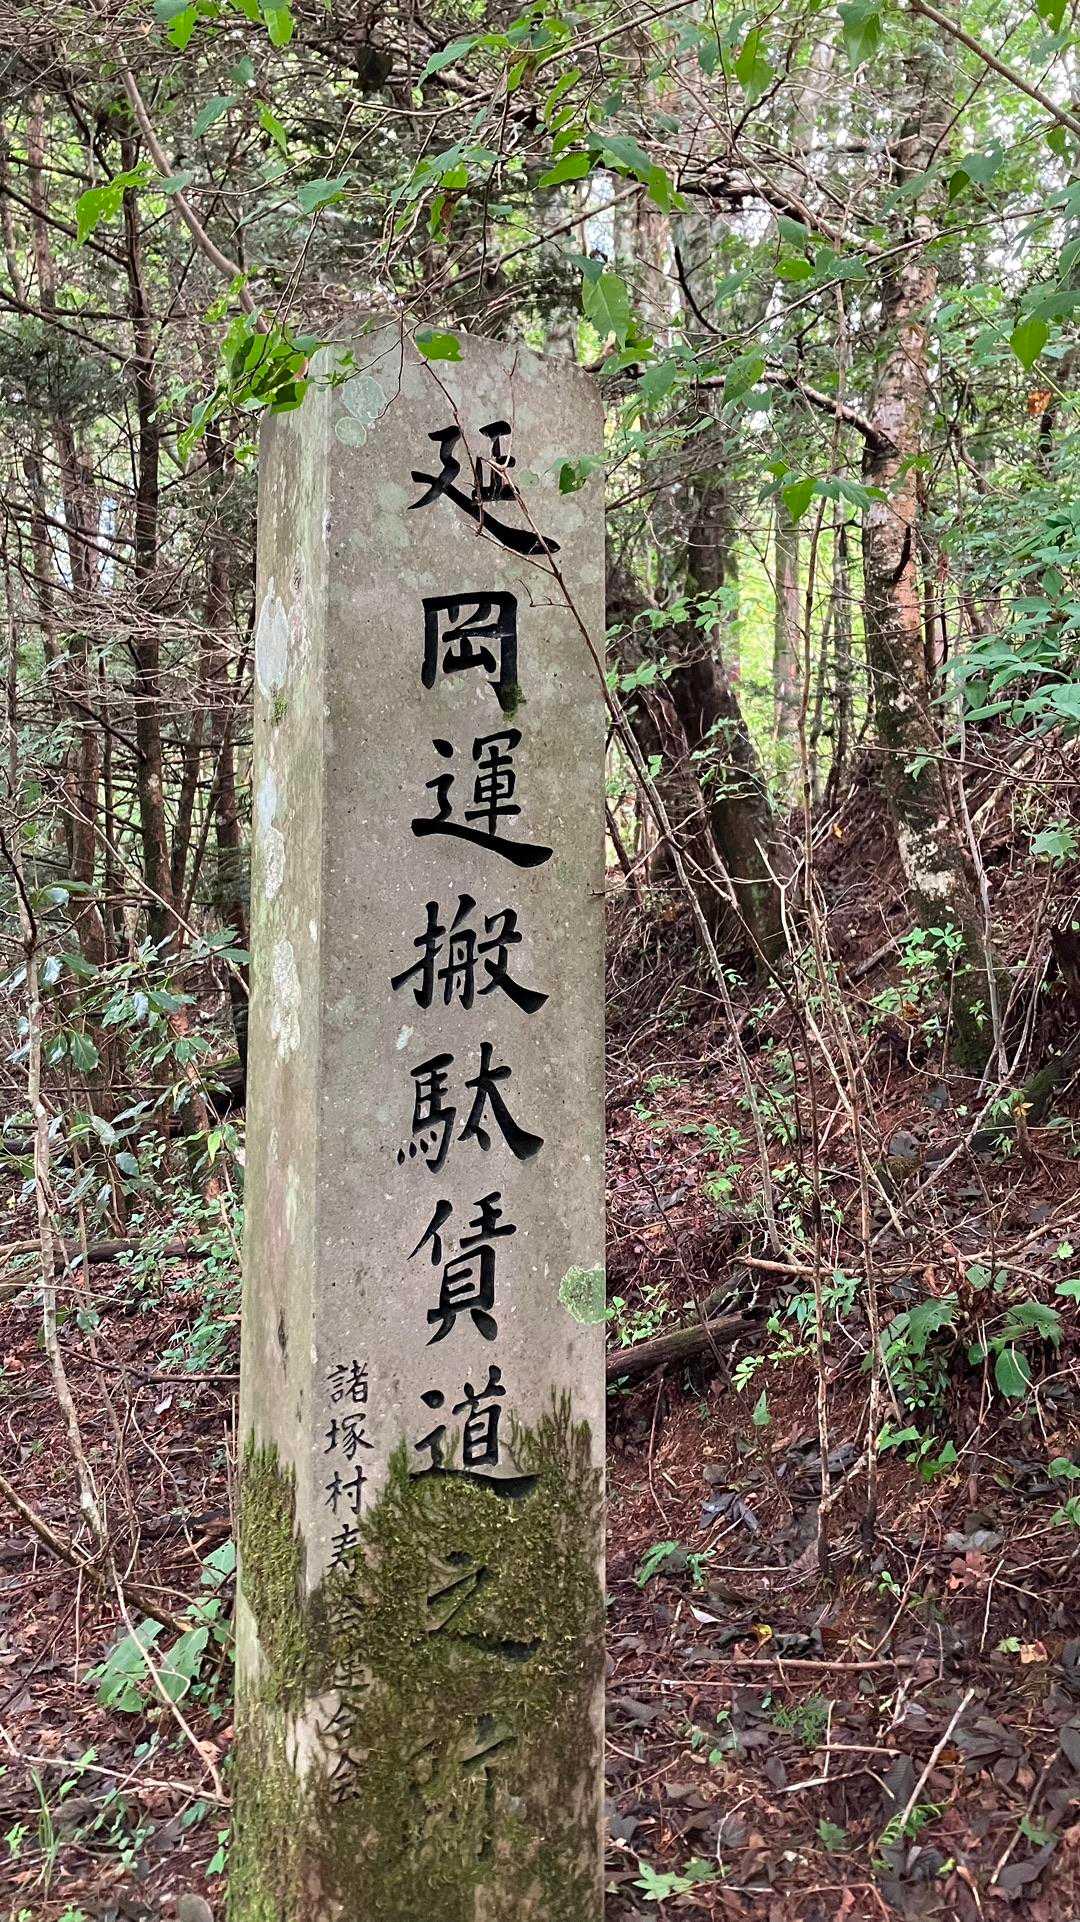 延岡運搬駄賃道之
諸塚村寿会連合会